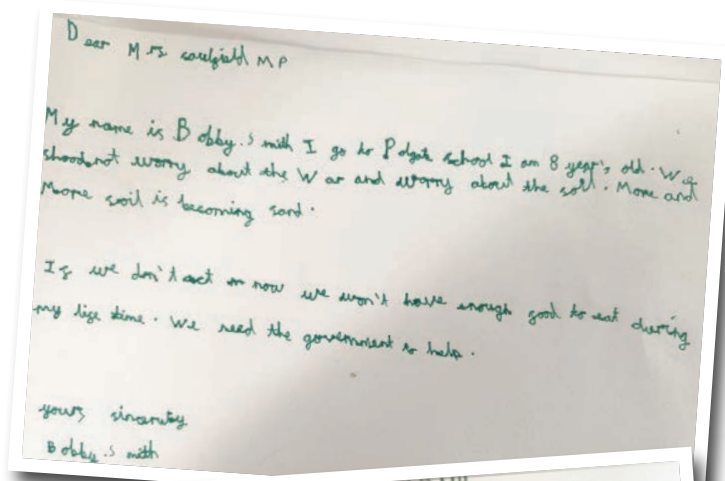 Dear Mrs caulfield MP
My name is Bobby.Smith I go to Polgate school I am 8 year's old. We
shoodnot worry about the War and worry about the soil. More and
More soil is becoming sand.
If we don't act on now we won't have enough food to eat during
my life time. We need the government to help.
yours sincerely
Bobby.Smith